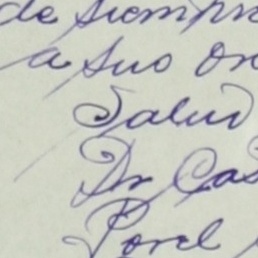 de siempre
a sus or
Salud
Dr Cas